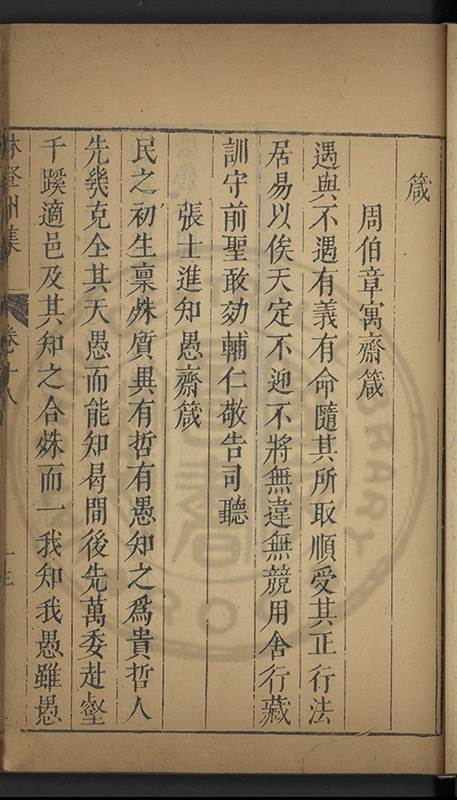 箴
周伯章寓齋箴
遇與不遇有義有命隨其所取順受其正行法
居易以俟天定不迎不將無違無競用舍行藏
訓守前聖敢効輔仁敬告司聽
張士進知愚齋箴
民之初生稟殊質異有哲有愚知之爲貴哲人
先幾克全其天愚而能知曷間後先萬委赴壑
千蹊適邑及其知之合殊而一我知我愚雖愚
林登州集
卷十八